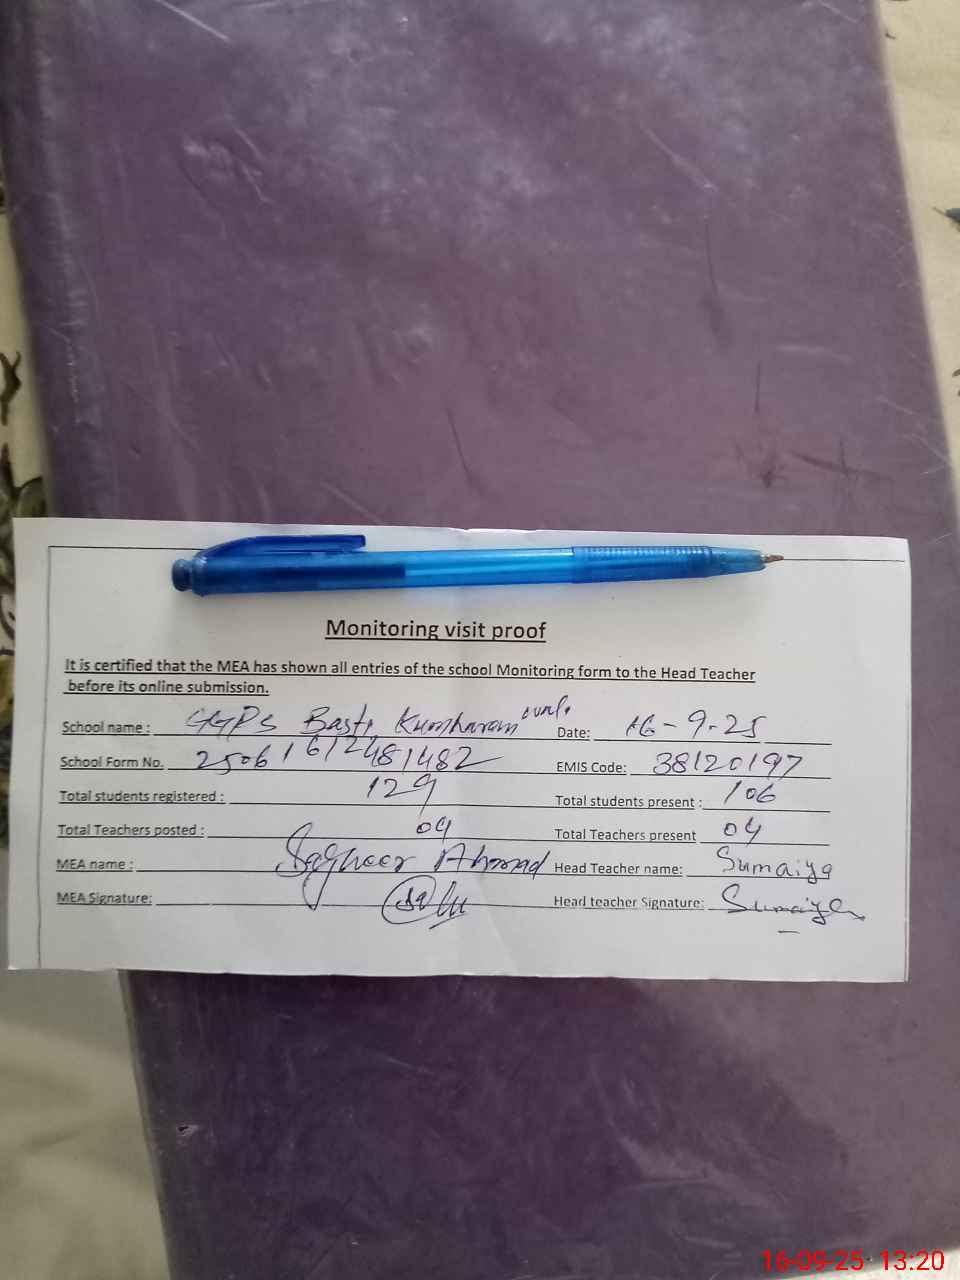 Monitoring visit proof
It is certified that the MEA has shown all entries of the school Monitoring form to the Head Teacher
before its online submission.
School name : GGPS Basti Kumharan wali Date: 16-9-25
School Form No. 25061612481482 EMIS Code: 38120197
Total students registered : 129 Total students present : 106
Total Teachers posted : 04 Total Teachers present 04
MEA name : Sagheer Ahmad Head Teacher name: Sumaiya
MEA Signature: Head teacher Signature: Sumaiya
16-09-25 13:20